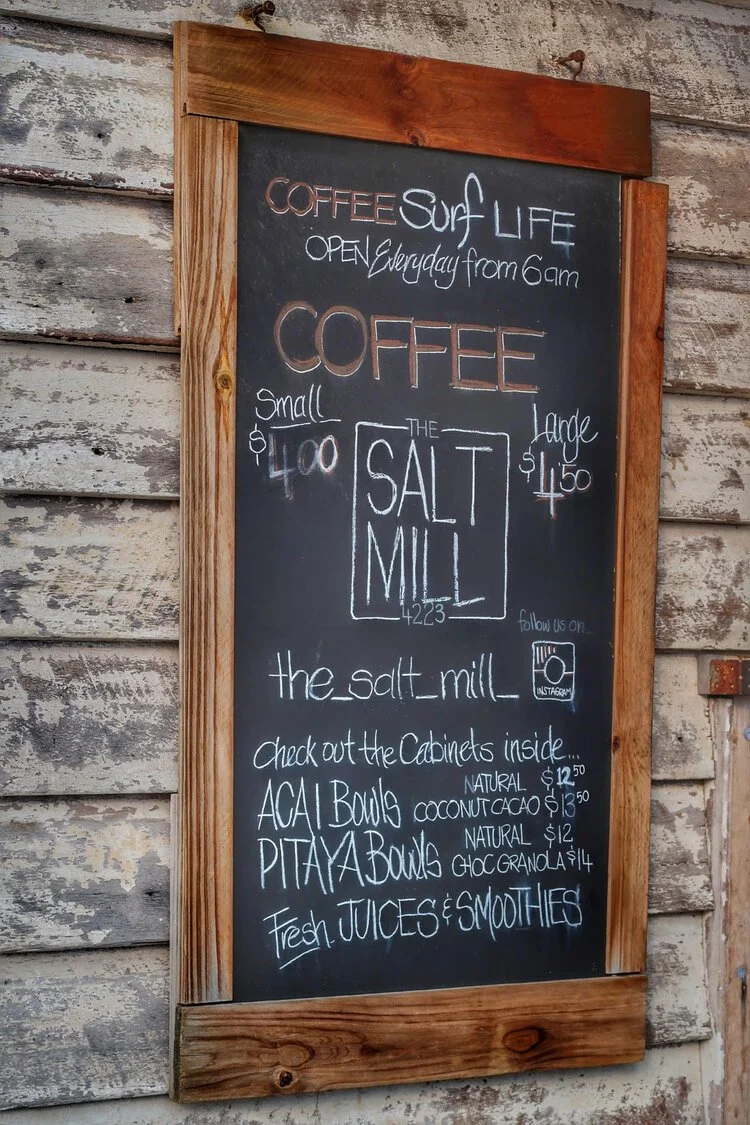 COFFEE Surf LIFE
OPEN Everyday from 6am
COFFEE
Small
$4.00
Large
$4.50
THE
SALT
MILL
4223
follow us on...
the_salt_mill_
INSTAGRAM
Check out the Cabinets inside...
ACAI BOWLS NATURAL $12.50
COCONUT CACAO $13.50
PITAYA BOWLS NATURAL $12
CHOC GRANOLA $14
Fresh JUICES & SMOOTHIES